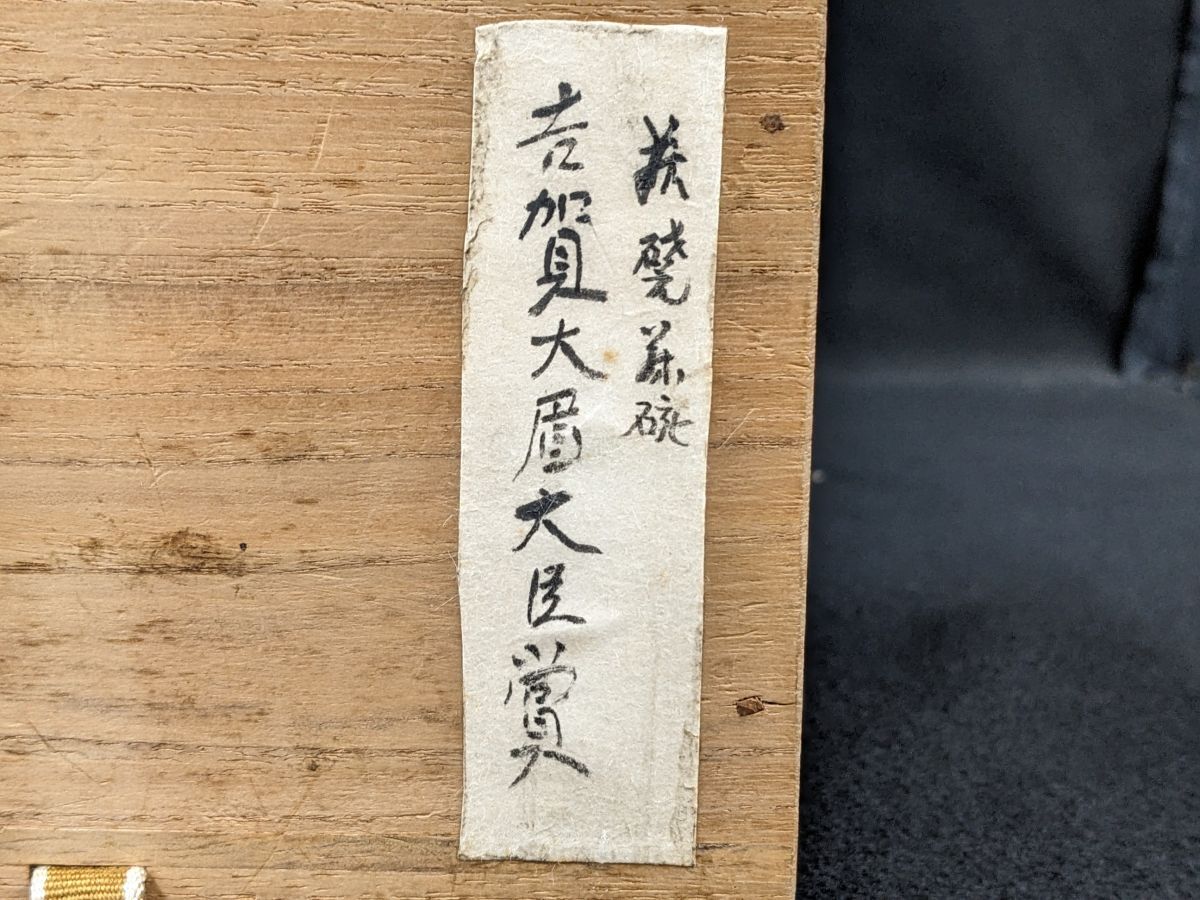 萩焼茶碗
吉賀大眉大臣賞